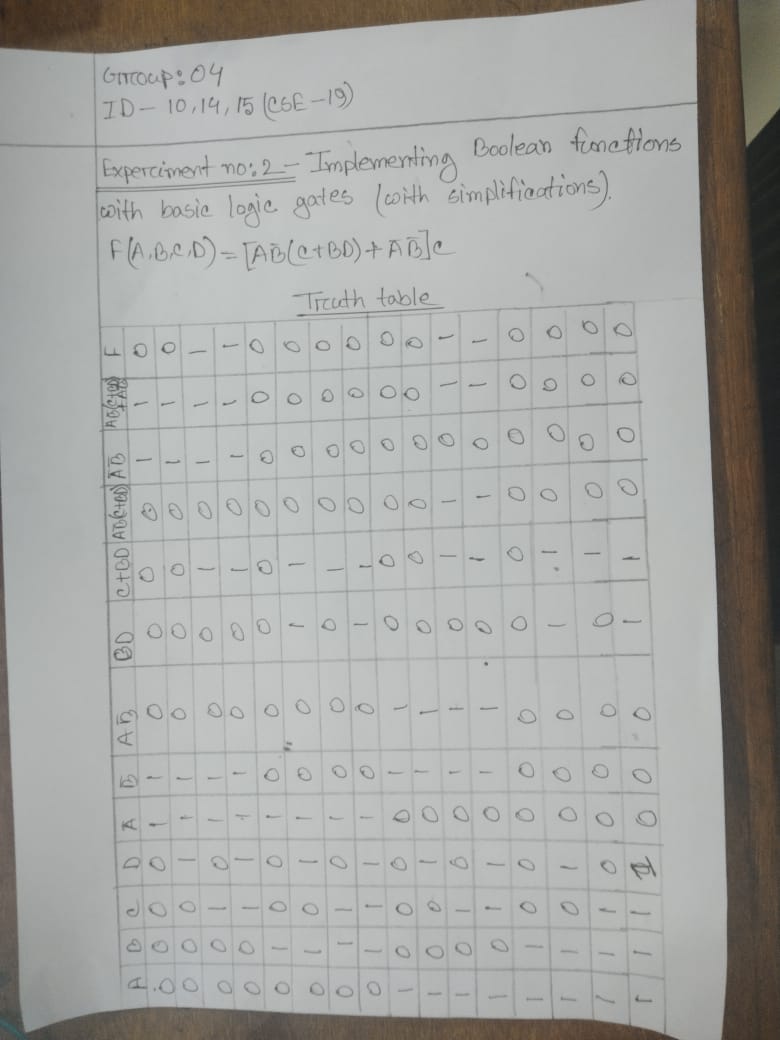 Group: 04
ID - 10, 14, 15 (CSE-19)
Experiment no: 2 - Implementing Boolean functions
with basic logic gates (with simplifications).
F(A,B,C,D) = [AB̅(C+BD)+A̅B̅]C
Truth table
A B C D A̅ B̅ AB̅ BD C+BD AB̅(C+BD) A̅B̅ AB̅(C+BD)+A̅B̅ F
0 0 0 0 1 1 0 0 0 0 1 1 0
0 0 0 1 1 1 0 0 0 0 1 1 0
0 0 1 0 1 1 0 0 1 0 1 1 1
0 0 1 1 1 1 0 0 1 0 1 1 1
0 1 0 0 1 0 0 0 0 0 0 0 0
0 1 0 1 1 0 0 1 1 0 0 0 0
0 1 1 0 1 0 0 0 1 0 0 0 0
0 1 1 1 1 0 0 1 1 0 0 0 0
1 0 0 0 0 1 1 0 0 0 0 0 0
1 0 0 1 0 1 1 0 0 0 0 0 0
1 0 1 0 0 1 1 0 1 1 0 1 1
1 0 1 1 0 1 1 0 1 1 0 1 1
1 1 0 0 0 0 0 0 0 0 0 0 0
1 1 0 1 0 0 0 1 1 0 0 0 0
1 1 1 0 0 0 0 0 1 0 0 0 0
1 1 1 1 0 0 0 1 1 0 0 0 0